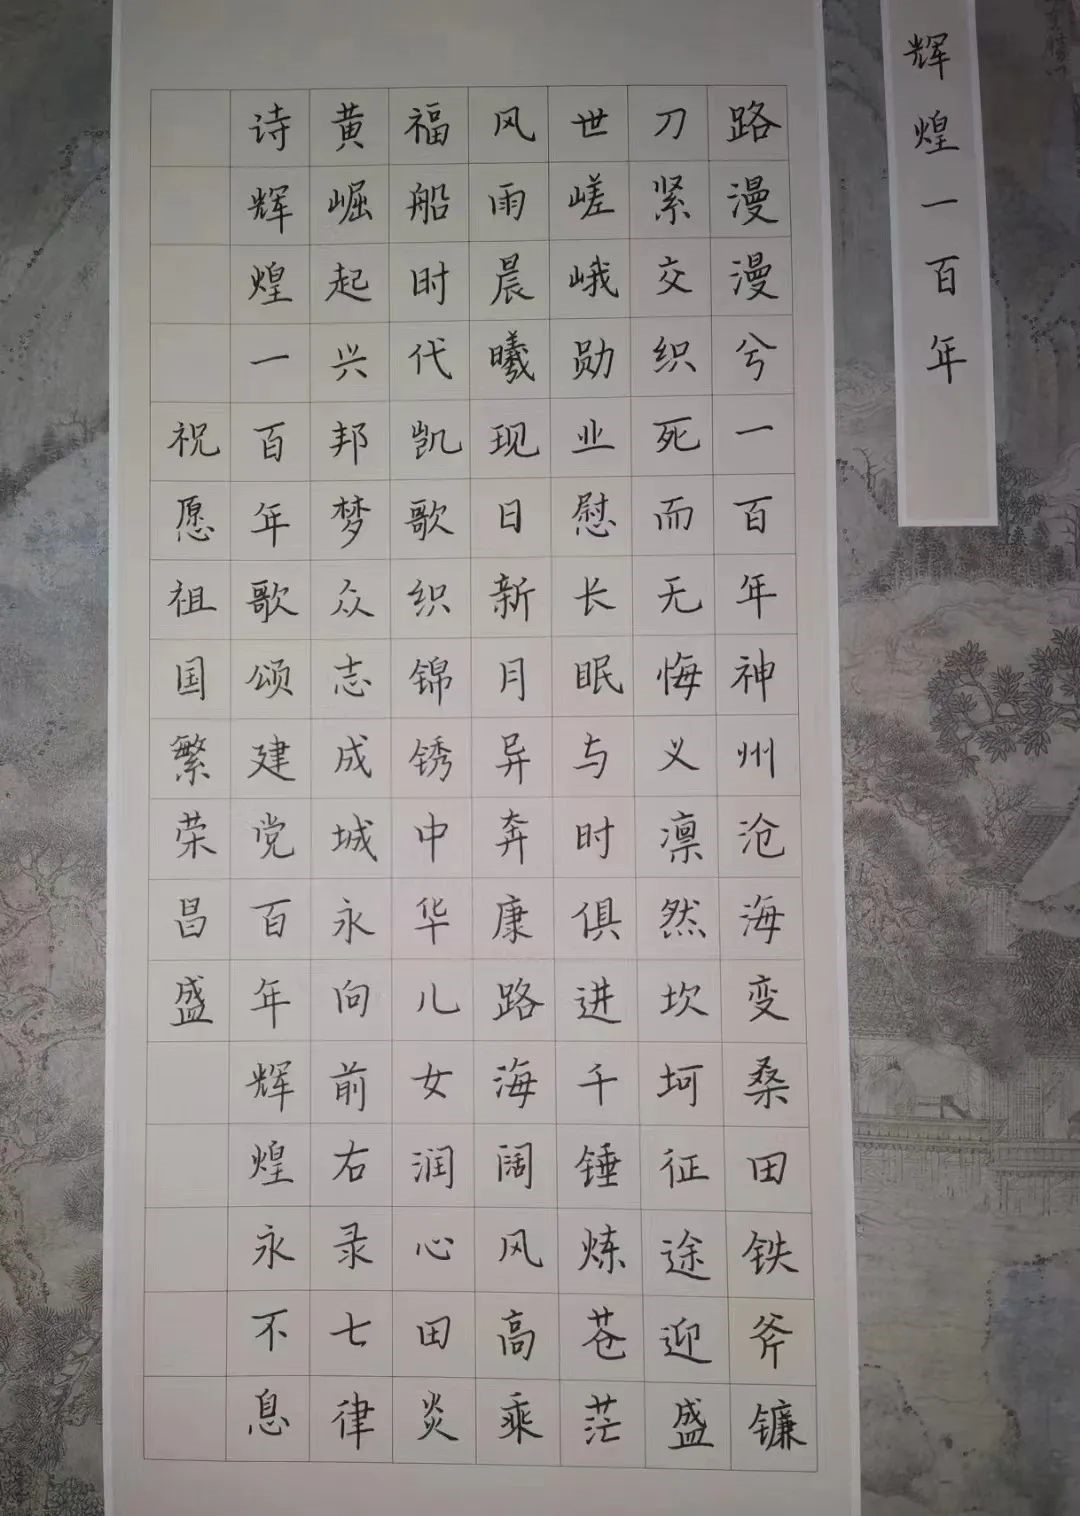 辉煌一百年
路漫漫兮一百年神州沧海变桑田铁斧镰
刀紧交织死而无悔义凛然坎坷征途迎盛
世嵯峨勋业慰长眠与时俱进千锤炼苍茫
风雨晨曦现日新月异奔康路海阔风高乘
福船时代凯歌织锦锈中华儿女润心田炎
黄崛起兴邦梦众志成城永向前右录七律
诗辉煌一百年歌颂建党百年辉煌永不息
祝愿祖国繁荣昌盛